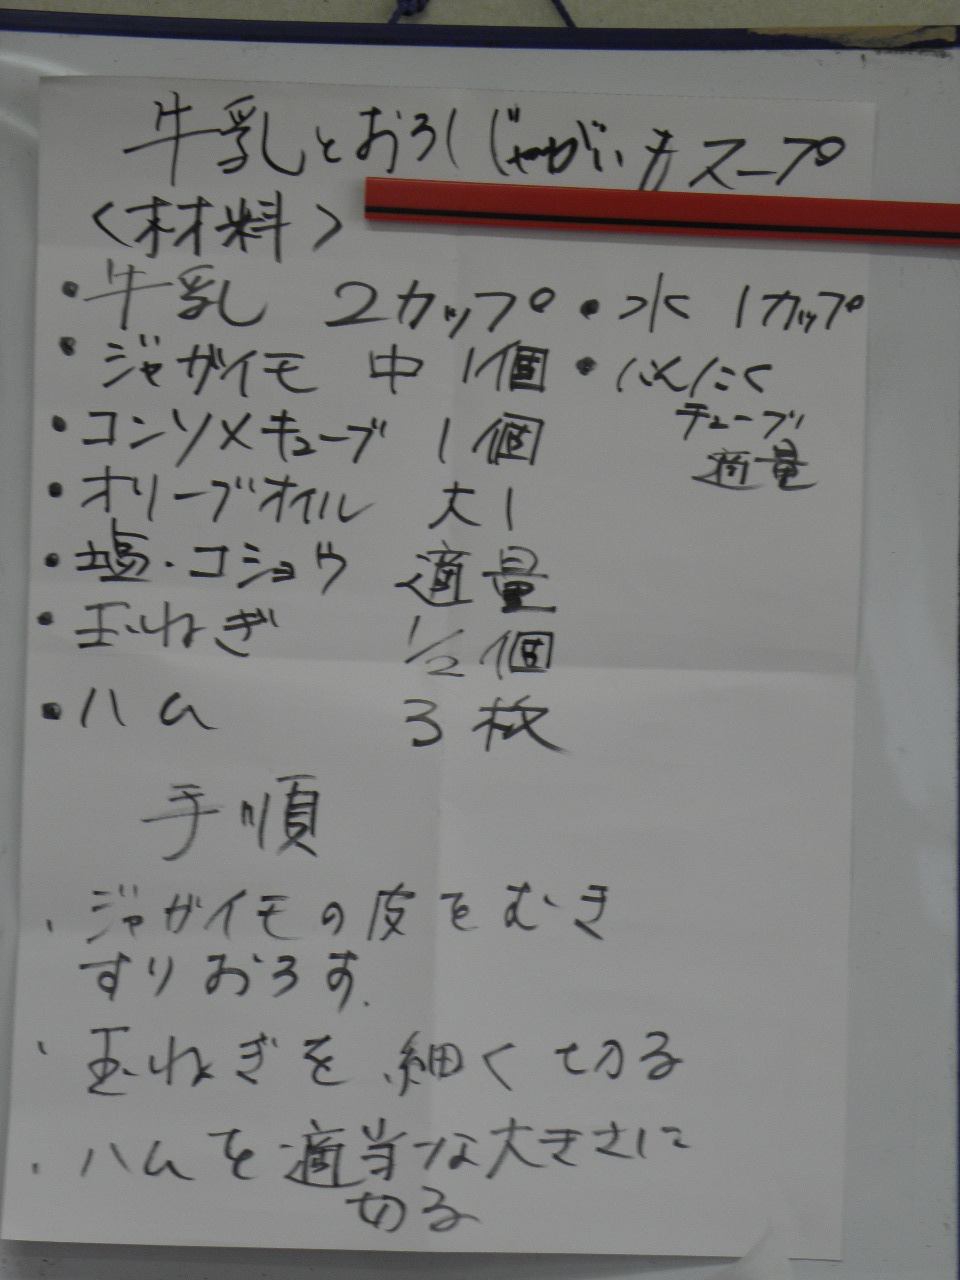 牛乳とおろしじゃがいもスープ
<材料>
・牛乳 2カップ ・水 1カップ
・ジャガイモ 中 1個 ・にんにく
チューブ
適量
・コンソメキューブ 1個
・オリーブオイル 大1
・塩・コショウ 適量
・玉ねぎ 1/2個
・ハム 3枚
手順
、ジャガイモの皮をむき
すりおろす、
、玉ねぎを、細く切る
、ハムを適当な大きさに
切る